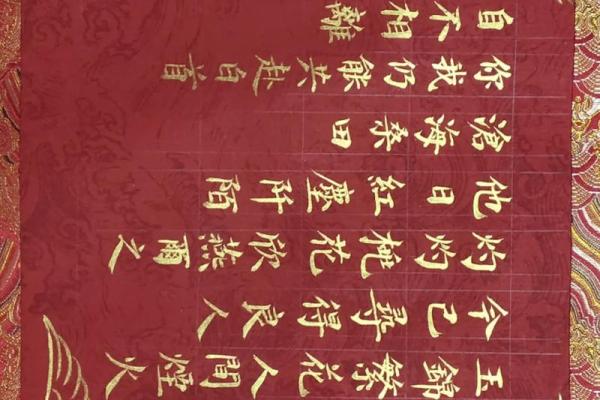 玉錦繁花人間煙火
今已尋得良人
灼灼桃花欣燕爾之
他日紅塵阡陌
滄海桑田
你我仍能共赴白首
自不相離